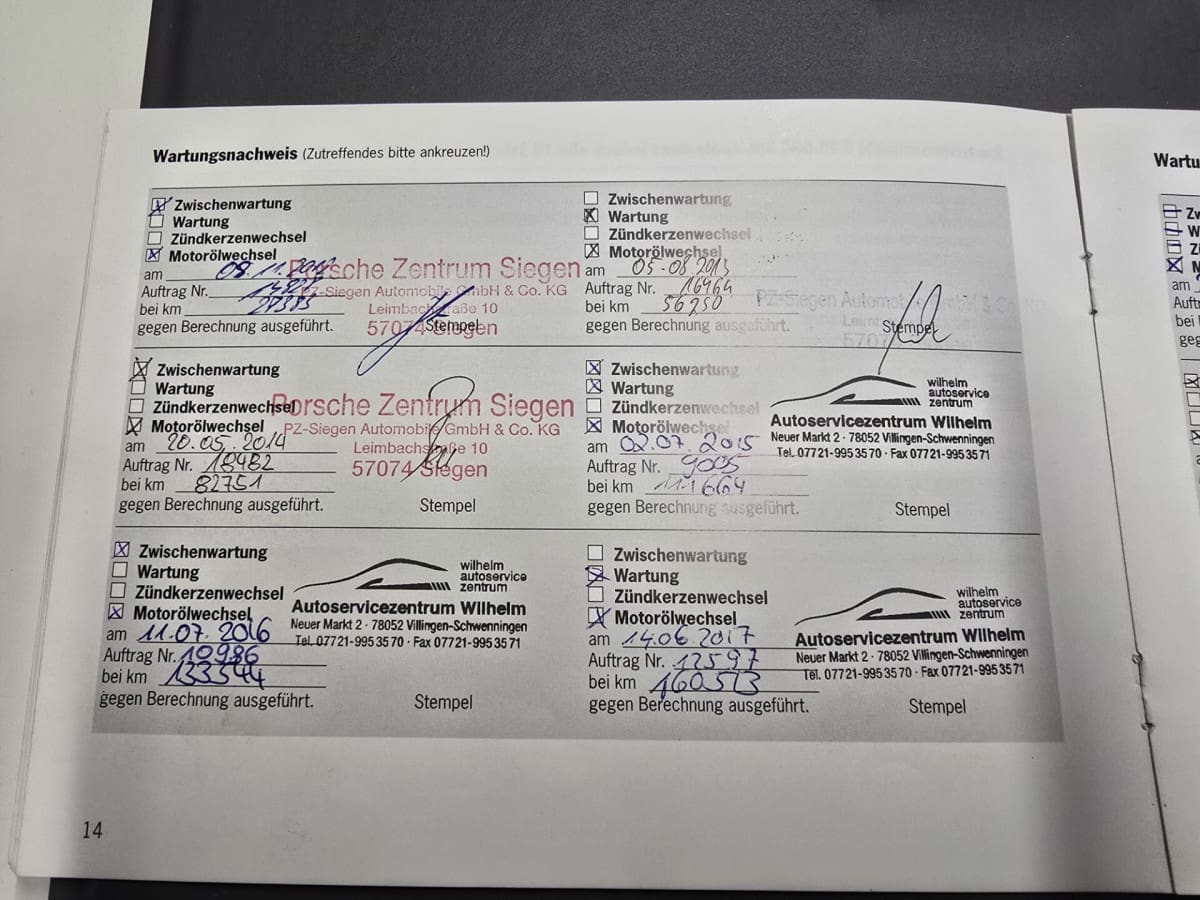 Wartungsnachweis (Zutreffendes bitte ankreuzen!)
Zwischenwartung
Wartung
Zündkerzenwechsel
Motorölwechsel
am 08.11.2012
Auftrag Nr.
bei km
gegen Berechnung ausgeführt.
Porsche Zentrum Siegen
PZ-Siegen Automobile GmbH & Co. KG
Leimbachstraße 10
57074 Siegen
Stempel
Zwischenwartung
Wartung
Zündkerzenwechsel
Motorölwechsel
am 05-08.2013
Auftrag Nr. 16464
bei km 56250
gegen Berechnung ausgeführt.
PZ-Siegen Automobile GmbH & Co. KG
Stempel
Zwischenwartung
Wartung
Zündkerzenwechsel
Motorölwechsel
am 20.05.2014
Auftrag Nr. 18482
bei km 82751
gegen Berechnung ausgeführt.
Porsche Zentrum Siegen
PZ-Siegen Automobile GmbH & Co. KG
Leimbachstraße 10
57074 Siegen
Stempel
Zwischenwartung
Wartung
Zündkerzenwechsel
Motorölwechsel
am 02.07.2015
Auftrag Nr. 9005
bei km 111664
gegen Berechnung ausgeführt.
wilhelm
autoservice
zentrum
Autoservicezentrum Wilhelm
Neuer Markt 2 · 78052 Villingen-Schwenningen
Tel. 07721-9953570 · Fax 07721-9953571
Stempel
Zwischenwartung
Wartung
Zündkerzenwechsel
Motorölwechsel
am 11.07.2016
Auftrag Nr. 10986
bei km 133544
gegen Berechnung ausgeführt.
wilhelm
autoservice
zentrum
Autoservicezentrum Wilhelm
Neuer Markt 2 · 78052 Villingen-Schwenningen
Tel. 07721-9953570 · Fax 07721-9953571
Stempel
Zwischenwartung
Wartung
Zündkerzenwechsel
Motorölwechsel
am 14.06.2017
Auftrag Nr. 12597
bei km 160513
gegen Berechnung ausgeführt.
wilhelm
autoservice
zentrum
Autoservicezentrum Wilhelm
Neuer Markt 2 · 78052 Villingen-Schwenningen
Tel. 07721-9953570 · Fax 07721-9953571
Stempel
14
Wartu
Zw
W
am
bei